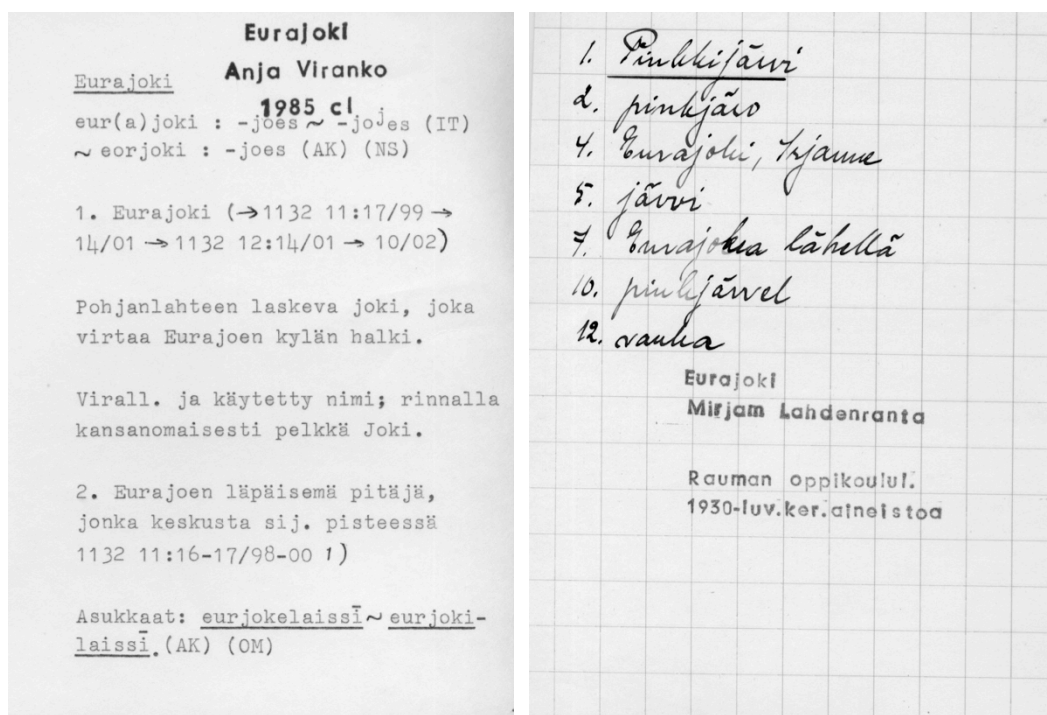 Eurajoki
Anja Viranko
1985 cl
Eurajoki
eur(a)joki : -joes ~ -jojes (IT)
~ eorjoki : -joes (AK) (NS)
1. Eurajoki (→1132 11:17/99 →
14/01 → 1132 12:14/01 → 10/02)
Pohjanlahteen laskeva joki, joka
virtaa Eurajoen kylän halki.
Virall. ja käytetty nimi; rinnalla
kansanomaisesti pelkkä Joki.
2. Eurajoen läpäisemä pitäjä,
jonka keskusta sij. pisteessä
1132 11:16-17/98-00 1)
Asukkaat: eurjokelaissī ~ eurjoki-
laissī. (AK) (OM)
1. Pinkkijärvi
2. pinkjärv
4. Eurajoki, Irjanne
5. järvi
7. Eurajokea lähellä
10. pinkjärvel
12. vanha
Eurajoki
Mirjam Lahdenranta
Rauman oppikoulul.
1930-luv.ker.aineistoa